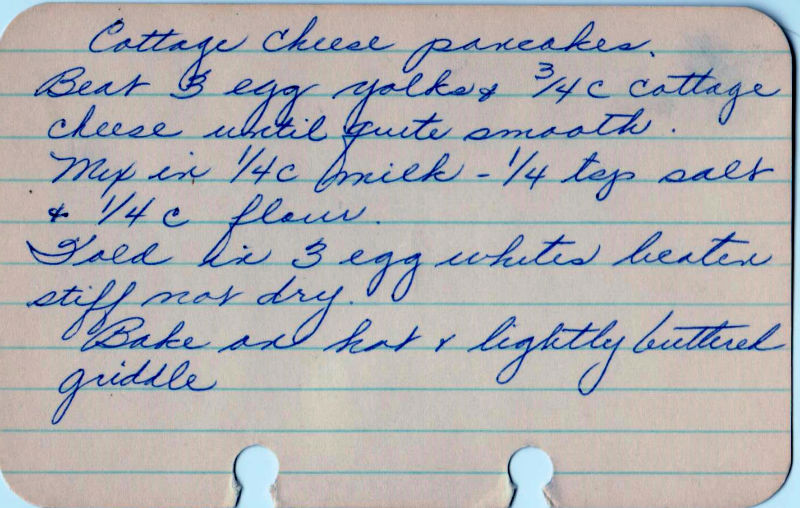 Cottage Cheese pancakes.
Beat 3 egg yolks & 3/4 c cottage
cheese until quite smooth.
Mix in 1/4 c milk - 1/4 tsp salt
& 1/4 c flour.
Fold in 3 egg whites beaten
stiff not dry.
Bake on hot & lightly buttered
griddle